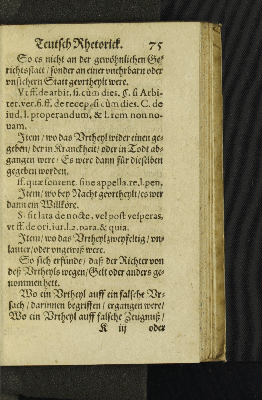 Teutsch Rhetorick. 75
So es nicht an der gewöhnlichen Ge⸗
richtsstatt / sonder an einer vnehrbarn oder
vnsichern Statt geortheylt were.
Vt ff. de arbit. fi. cùm dies. C. si Arbi-
ter. ver. fi. ff. de recep. si cùm dies. C. de
iud. l. properandum, & l. rem non no-
uam.
Item / wo das Vrtheyl wider einen ge⸗
geben / der in Kranckheit / oder in Todt ab⸗
gangen were / Es were dann für dieselben
gegeben worden.
ff. quæ sentent. sine appella. re. l. pen.
Item / wo bey Nacht georthcylt / es wer
dann ein Willköre.
Si fit lata de nocte, vel post vesperas,
vt ff. de ori. iur. l. 2. para. & quia.
Item / wo das Vrtheyl zweyfeltig / vn⸗
lauter / oder vngewiß were.
So sich erfünde / daß der Richter von
deß Vrtheyls wegen / Gelt oder anders ge⸗
nommen hett.
Wo ein Vrtheyl auff ein falsche Vr⸗
sach / darinnen begriffen / ergangen were /
Wo ein Vrtheyl auff falsche Zeugnuß /
K iij oder